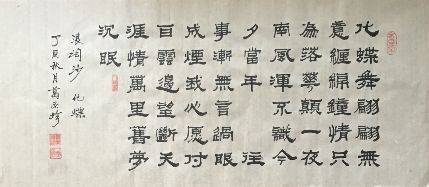 化蝶舞翩翩無
意纏綿鐘情只
為落華顛一夜
南風渾不識今
夕當年 往
事漸無言過眼
成煙我心願付
白雲邊望斷天
涯情萬里舊夢
沉眠
浪淘沙 化蝶
丁亥秋月葛